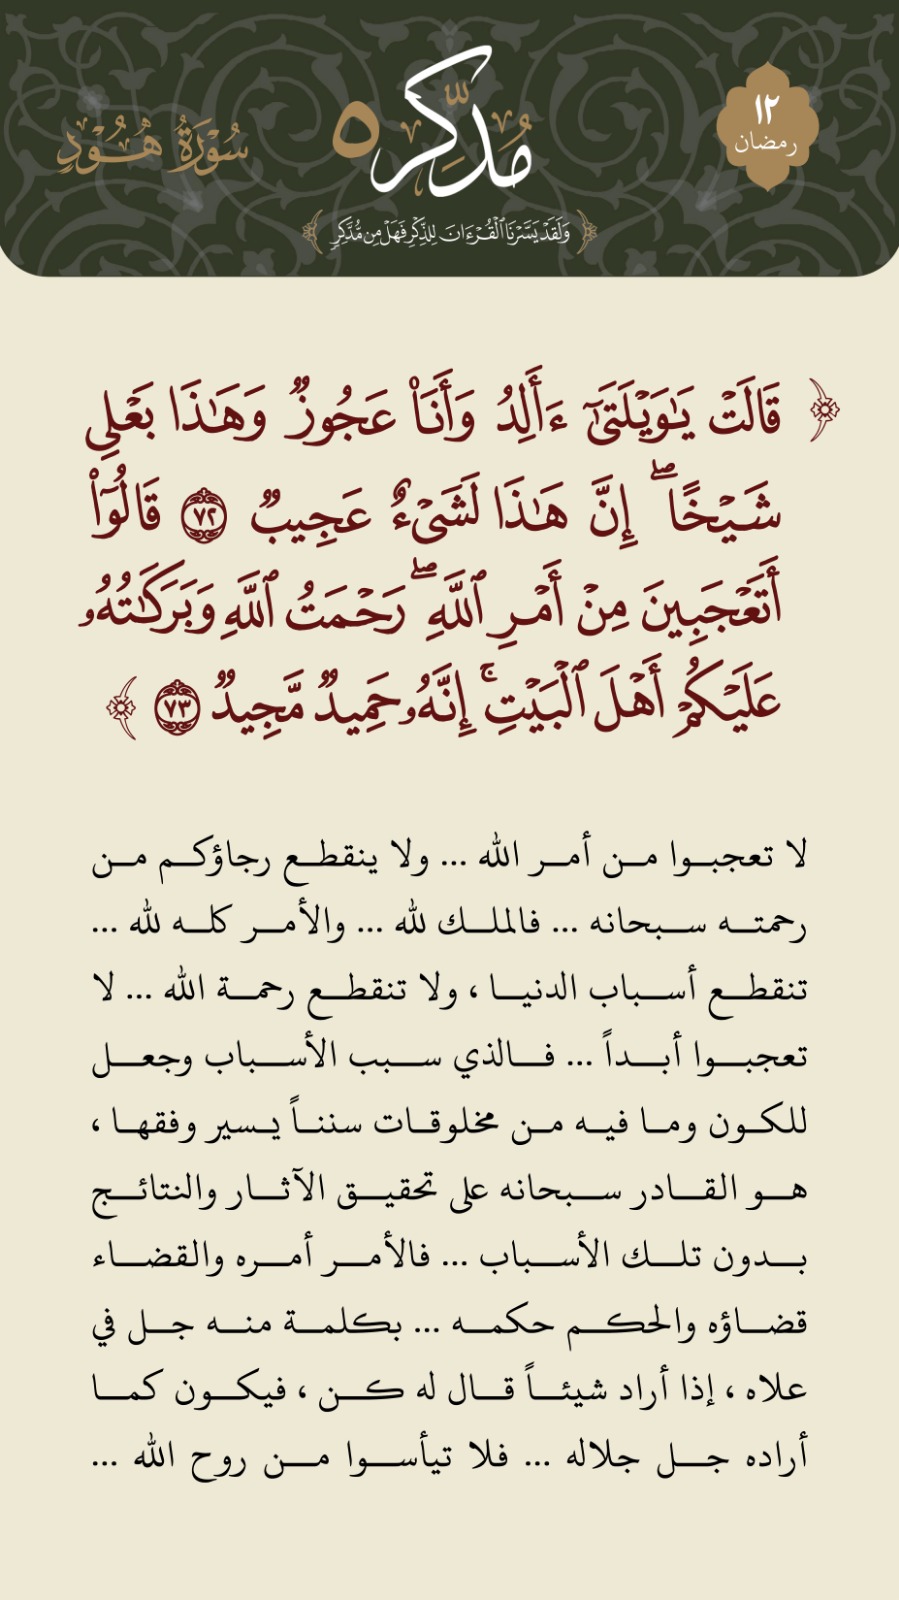 ١٢
رمضان
مُدَّكِّر ٥
سُورَةُ هُودٍ
﴿ وَلَقَدْ يَسَّرْنَا ٱلْقُرْءَانَ لِلذِّكْرِ فَهَلْ مِن مُّدَّكِرٍ ﴾
﴿ قَالَتْ يَٰوَيْلَتَىٰٓ ءَأَلِدُ وَأَنَا۠ عَجُوزٌ وَهَٰذَا بَعْلِى
شَيْخًا ۖ إِنَّ هَٰذَا لَشَىْءٌ عَجِيبٌ ٧٢ قَالُوٓا۟
أَتَعْجَبِينَ مِنْ أَمْرِ ٱللَّهِ ۖ رَحْمَتُ ٱللَّهِ وَبَرَكَٰتُهُۥ
عَلَيْكُمْ أَهْلَ ٱلْبَيْتِ ۚ إِنَّهُۥ حَمِيدٌ مَّجِيدٌ ٧٣ ﴾
لا تعجبوا من أمر الله ... ولا ينقطع رجاؤكم من
رحمته سبحانه ... فالملك لله ... والأمر كله لله ...
تنقطع أسباب الدنيا ، ولا تنقطع رحمة الله ... لا
تعجبوا أبداً ... فالذي سبب الأسباب وجعل
للكون وما فيه من مخلوقات سنناً يسير وفقها ،
هو القادر سبحانه على تحقيق الآثار والنتائج
بدون تلك الأسباب ... فالأمر أمره والقضاء
قضاؤه والحكم حكمه ... بكلمة منه جل في
علاه ، إذا أراد شيئاً قال له كن ، فيكون كما
أراده جل جلاله ... فلا تيأسوا من روح الله ...